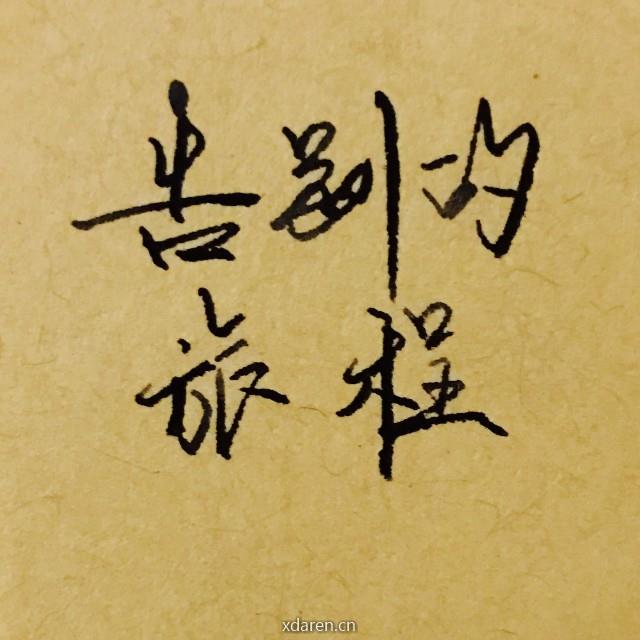 告别的
旅程
xdaren.cn